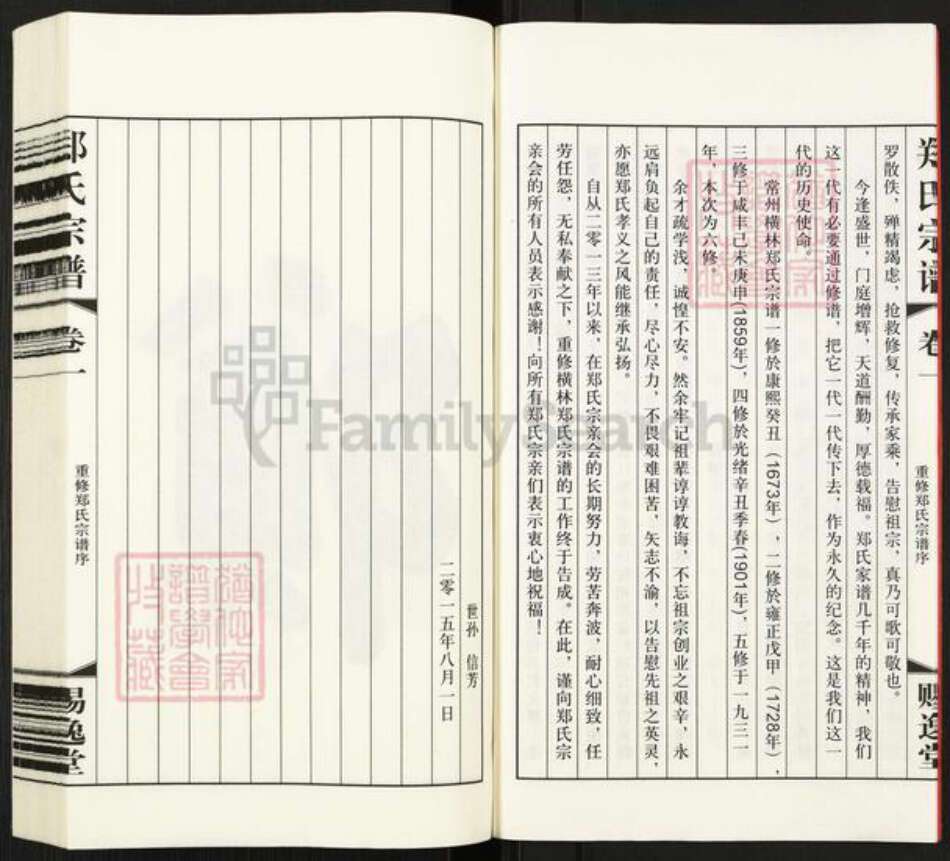 郑氏宗谱
卷一
重修郑氏宗谱序
赐逸堂
罗散佚，殚精竭虑，抢救修复，传承家乘，告慰祖宗，真乃可歌可敬也。
今逢盛世，门庭增辉，天道酬勤，厚德载福。郑氏家谱几千年的精神，我们
这一代有必要通过修谱，把它一代一代传下去，作为永久的纪念。这是我们这一
代的历史使命。
常州横林郑氏宗谱一修於康熙癸丑（1673年），二修於雍正戊甲（1728年），
三修于咸丰己未庚申(1859年)，四修於光绪辛丑季春(1901年)，五修于一九三一
年，本次为六修。
余才疏学浅，诚惶不安。然余牢记祖辈谆谆教诲，不忘祖宗创业之艰辛，永
远肩负起自己的责任，尽心尽力，不畏艰难困苦，矢志不渝，以告慰先祖之英灵，
亦愿郑氏孝义之风能继承弘扬。
自从二零一三年以来，在郑氏宗亲会的长期努力，劳苦奔波，耐心细致，任
劳任怨，无私奉献之下，重修横林郑氏宗谱的工作终于告成。在此，谨向郑氏宗
亲会的所有人员表示感谢！向所有郑氏宗亲们表示衷心地祝福！
世孙 信芳
二零一五年八月一日
郑氏宗谱
卷一
重修郑氏宗谱序
赐逸堂
FamilySearch